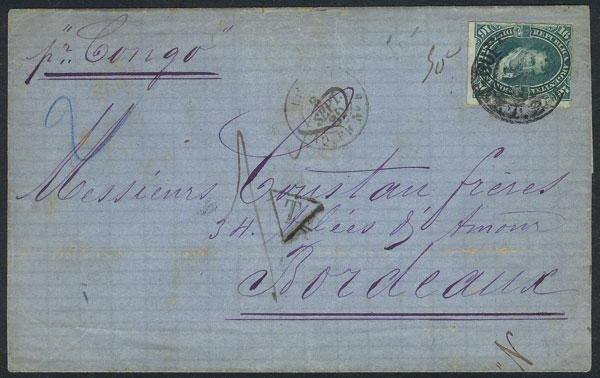 pr "Congo"
50
16 16
REPUBLICA ARGENTINA
2
SEPT.
80
T
Messieurs Coustau frères
34. Allées d'Amour
Bordeaux
N